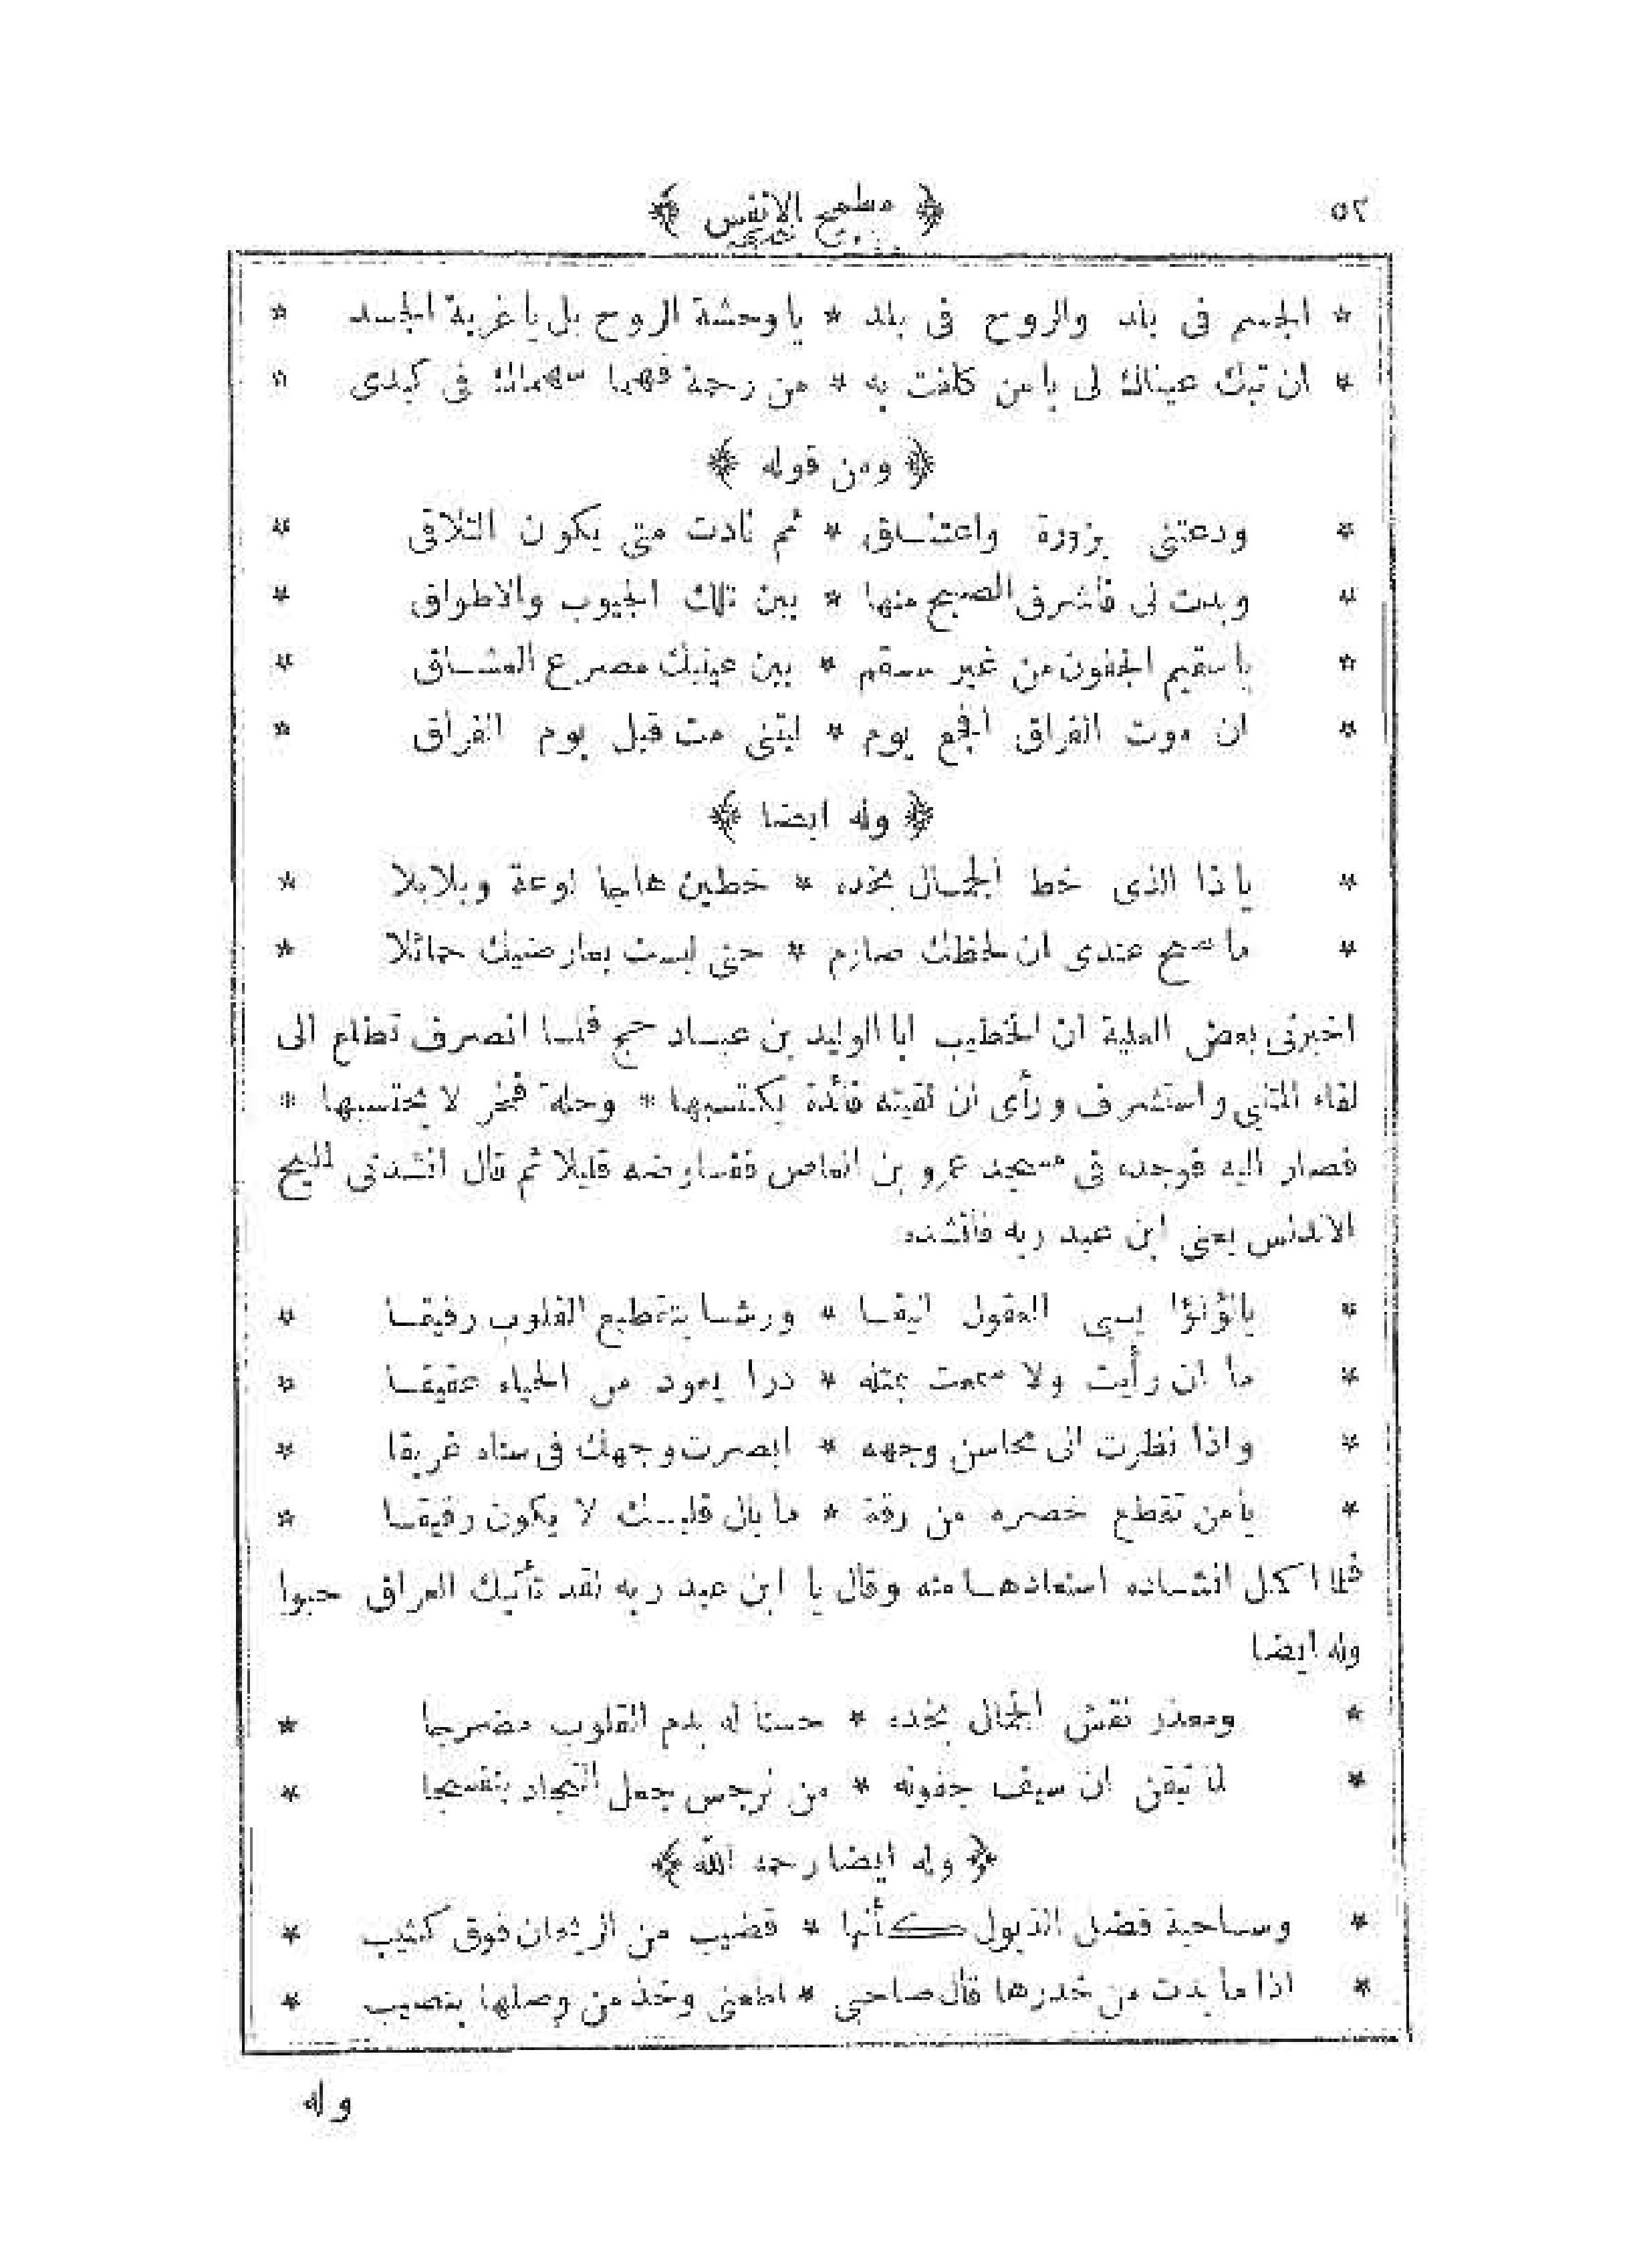 ٥٢ ﴿ مطمح الانفس ﴾
* الجسم فى بلد والروح فى بلد * يا وحشة الروح بل يا غربة الجسد *
* ان تبك عيناك لى يا من كلفت به * من رحمة فهما سهماك فى كبدى *
﴿ ومن قوله ﴾
* ودعتنى بزورة واعتنـاق * ثم نادت متى يكون التلاقى *
* وبدت لى فأشرق الصبح منها * بين تلك الجيوب والاطواق *
* يا سقيم الجفون من غير سقم * بين عينيك مصرع العشـاق *
* ان موت الفراق افجع يوم * ليتنى مت قبل يوم الفراق *
﴿ وله ايضا ﴾
* يا ذا الذى خط الجمـال بخده * خطين هاجا لوعة وبلابلا *
* ما صح عندى ان لحظك صارم * حتى لبست بعارضيك حمائلا *
اخبرنى بعض العلية ان الخطيب ابا الوليد بن عبـاد حج فلمـا انصرف تطلع الى
لقاء المتنبي واستشرف ورأى ان لقيته فائدة يكتسبها * وحلة فخر لا يحتسبها *
فصار اليه فوجده فى مسجد عمرو بن العاص ففـاوضه قليلا ثم قال انشدنى لمليح
الاندلس يعنى ابن عبد ربه فأنشده
* يالؤلؤا يسبى العقول انيقـا * ورشـا بتقطيع القلوب رفيقـا *
* ما ان رأيت ولا سمعت بمثله * درا يعود من الحياء عقيقـا *
* واذا نظرت الى محاسن وجهه * ابصرت وجهك فى سناه غريقا *
* يامن تقطع خصره من رقة * ما بال قلبـك لا يكون رفيقـا *
فلما اكمل انشـاده استعادهـا منه وقال يا ابن عبد ربه لقد تأتيك العراق حبوا
وله ايضا
* ومعذر نقش الجمال بخده * حسنا له بدم القلوب مضرجا *
* لما تيقن ان سيف جفونه * من نرجس جعل النجاد بنفسجا *
﴿ وله ايضا رحمه الله ﴾
* وسـاحبة فضل الذيول كـأنها * قضيب من الريحان فوق كثيب *
* اذا ما بدت من خدرها قال صاحبي * اطعنى وخذ من وصلها بنصيب *
وله